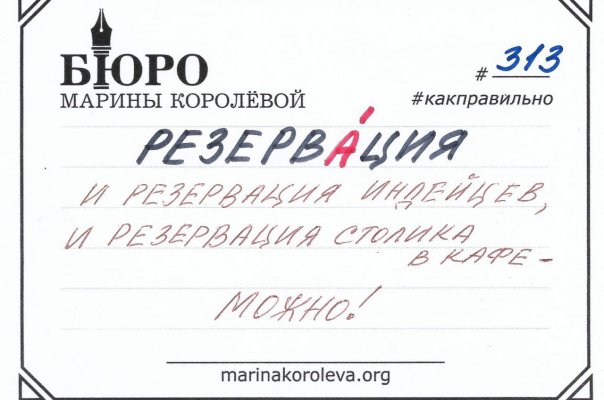 БЮРО
МАРИНЫ КОРОЛЁВОЙ
# 313
#какправильно
РЕЗЕРВА́ЦИЯ
И РЕЗЕРВАЦИЯ ИНДЕЙЦЕВ,
И РЕЗЕРВАЦИЯ СТОЛИКА
В КАФЕ –
МОЖНО!
marinakoroleva.org